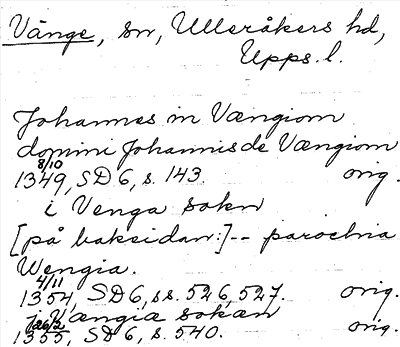 Vänge, sn, Ulleråkers hd,
Upps. l.
Johannes in Vængiom
domini Johannis de Vængiom
8/10
1349, SD 6, s. 143. orig.
i Venga sokn
[på baksidan:] -- parochia
Wengia.
4/11
1354, SD 6, ss. 526, 527. orig.
j Vængia sokan
26/2
1355, SD 6, s. 540. orig.